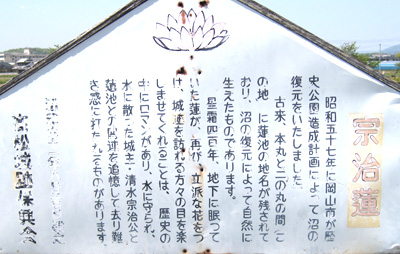 宗治蓮
昭和五十七年に岡山市が歴
史公園造成計画によって沼の
復元をいたしました。
古来、本丸と二の丸の間(こ
の地)に蓮池の地名が残されて
おり、沼の復元によって自然に
生えたものであります。
星霜四百年、地下に眠って
いた蓮が、再び、立派な花をつ
け、城迹を訪れる方々の目を楽
しませてくれることは、歴史の
ロマンがあり、水に守られ、
水に散った城主・清水宗治公と
蓮池との因迹を追憶して去り難
き感に打たれるものがあります。
高松城跡保興会